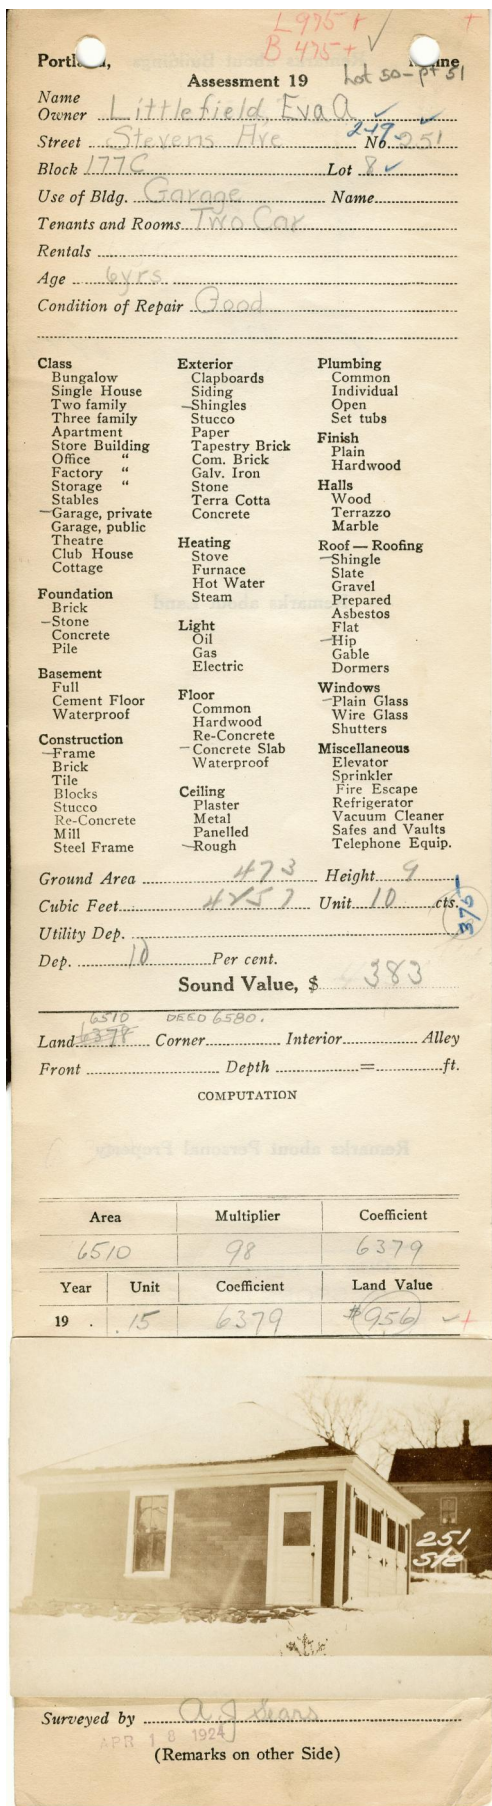 L 975 +
B 475 +
Portland, Maine
Assessment 19
Lot 50 - pt 51
Name
Owner Littlefield, Eva A.
Street Stevens Ave 249 No. 251
Block 177C Lot 8
Use of Bldg. Garage Name
Tenants and Rooms Two Car
Rentals
Age 6 yrs
Condition of Repair Good
Class
Bungalow
Single House
Two family
Three family
Apartment
Store Building
Office "
Factory "
Storage "
Stables
Garage, private
Garage, public
Theatre
Club House
Cottage
Foundation
Brick
Stone
Concrete
Pile
Basement
Full
Cement Floor
Waterproof
Construction
Frame
Brick
Tile
Blocks
Stucco
Re-Concrete
Mill
Steel Frame
Exterior
Clapboards
Siding
Shingles
Stucco
Paper
Tapestry Brick
Com. Brick
Galv. Iron
Stone
Terra Cotta
Concrete
Heating
Stove
Furnace
Hot Water
Steam
Light
Oil
Gas
Electric
Floor
Common
Hardwood
Re-Concrete
Concrete Slab
Waterproof
Ceiling
Plaster
Metal
Panelled
Rough
Plumbing
Common
Individual
Open
Set tubs
Finish
Plain
Hardwood
Halls
Wood
Terrazzo
Marble
Roof — Roofing
Shingle
Slate
Gravel
Prepared
Asbestos
Flat
Hip
Gable
Dormers
Windows
Plain Glass
Wire Glass
Shutters
Miscellaneous
Elevator
Sprinkler
Fire Escape
Refrigerator
Vacuum Cleaner
Safes and Vaults
Telephone Equip.
Ground Area 473 Height 9
Cubic Feet 4257 Unit 10 cts.
375
Utility Dep.
Dep. 10 Per cent.
Sound Value, $ 383
6510 DEED 6580.
Land 6379 Corner Interior Alley
Front Depth = ft.
COMPUTATION
Area Multiplier Coefficient
6510 98 6379
Year Unit Coefficient Land Value
19 . .15 6379 $956
251
Ste
Surveyed by A J Sears
APR 18 1924
(Remarks on other Side)